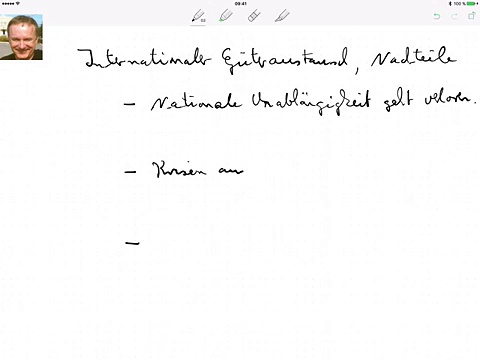 09:41
100 %
Internationaler Güteraustausch, Nachteile
– Nationale Unabhängigkeit geht verloren.
– Krisen an
–